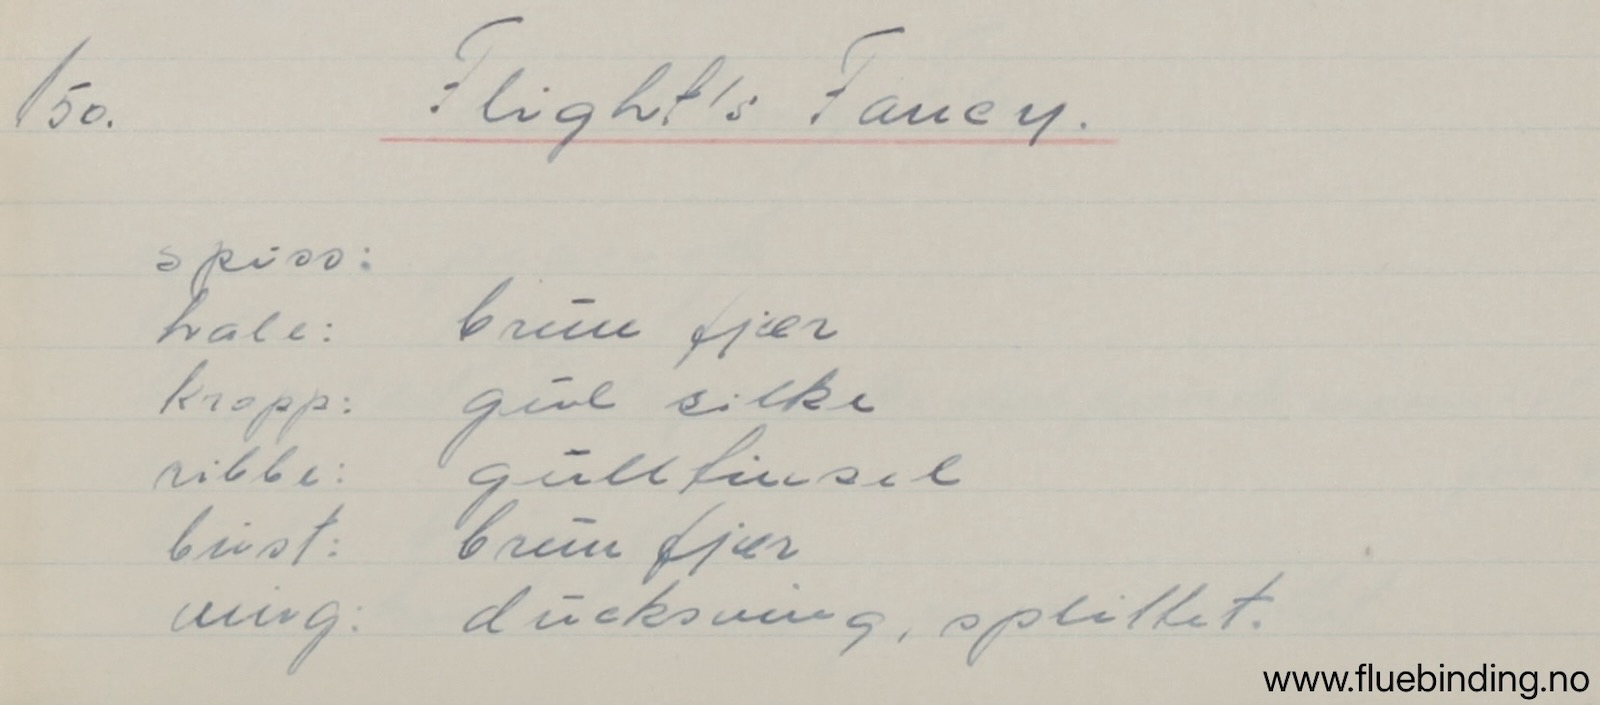 150. Flight's Fancy.
spiss:
hale: brun fjær
kropp: gul silke
ribbe: gulltinsel
bust: brun fjær
ving: ducksving, splittet.
www.fluebinding.no